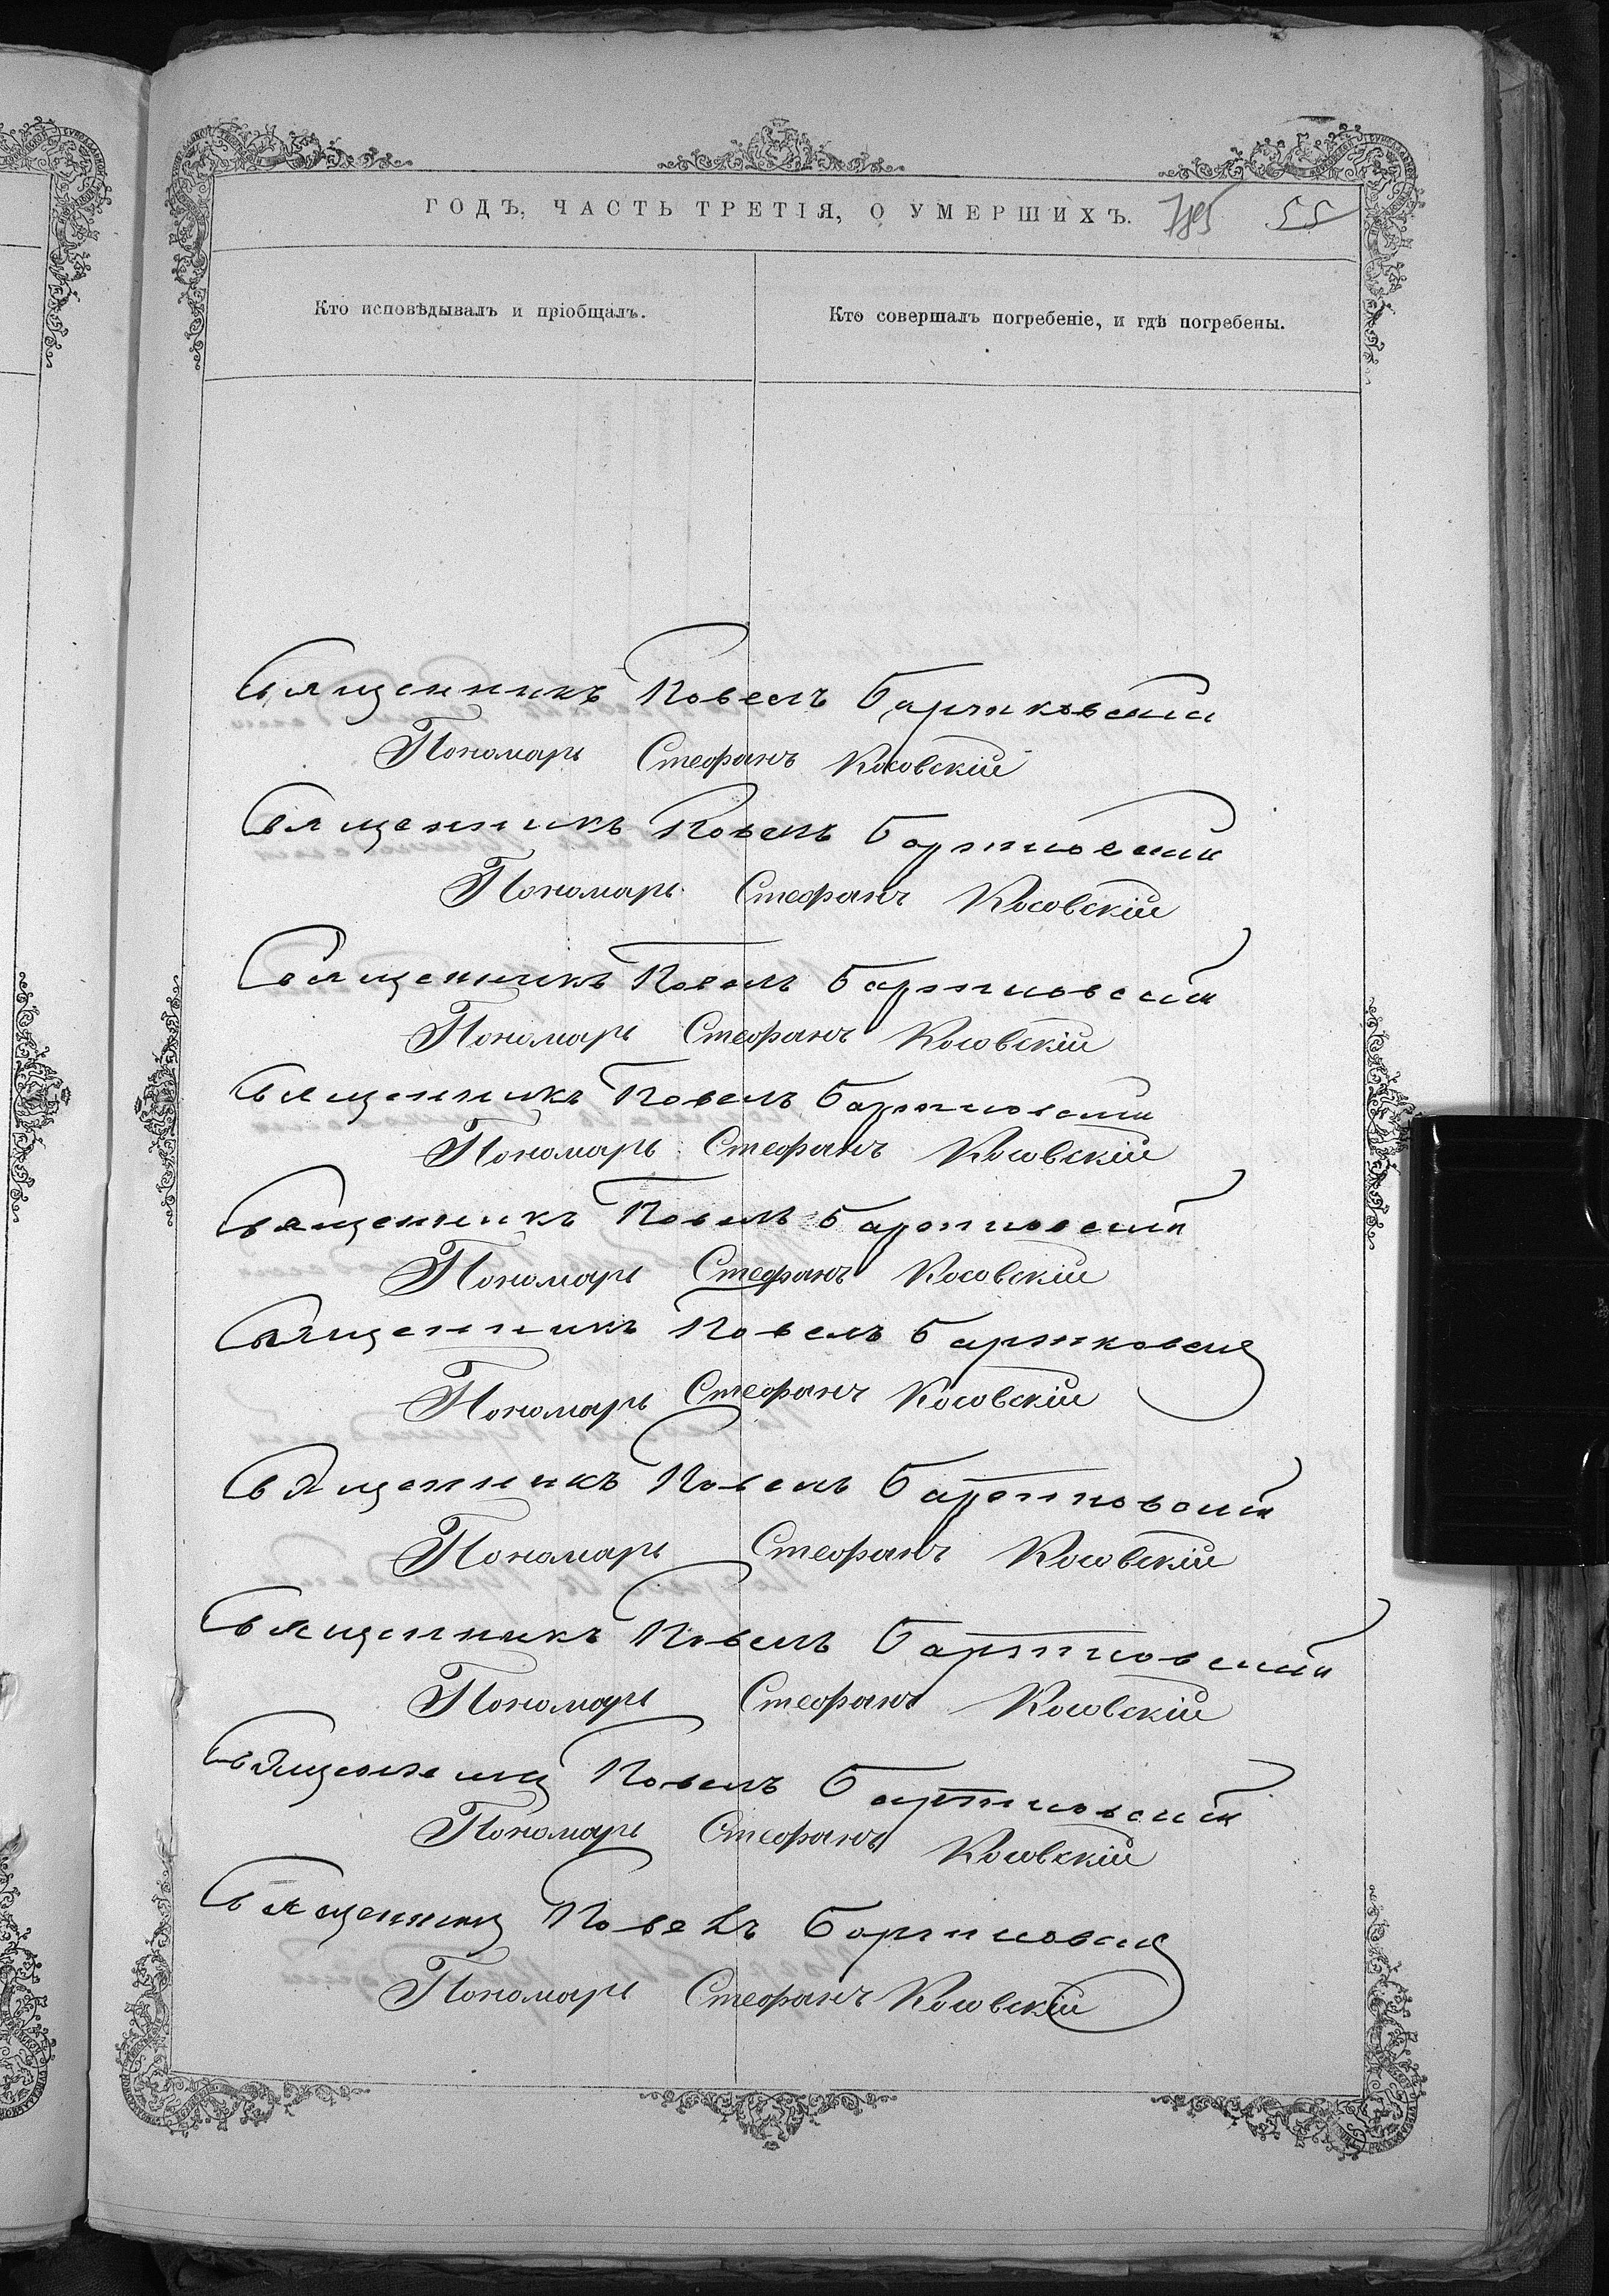 ГОДЪ, ЧАСТЬ ТРЕТІЯ, О УМЕРШИХЪ. 55
Кто исповѣдывалъ и пріобщалъ.
Кто совершалъ погребеніе, и гдѣ погребены.
Священникъ Павелъ Бартковскій
Пономарь Стефанъ Косовскій
Священникъ Павелъ Бартковскій
Пономарь Стефанъ Косовскій
Священникъ Павелъ Бартковскій
Пономарь Стефанъ Косовскій
Священникъ Павелъ Бартковскій
Пономарь Стефанъ Косовскій
Священникъ Павелъ Бартковскій
Пономарь Стефанъ Косовскій
Священникъ Павелъ Бартковскій
Пономарь Стефанъ Косовскій
Священникъ Павелъ Бартковскій
Пономарь Стефанъ Косовскій
Священникъ Павелъ Бартковскій
Пономарь Стефанъ Косовскій
Священникъ Павелъ Бартковскій
Пономарь Стефанъ Косовскій
Священникъ Павелъ Бартковскій
Пономарь Стефанъ Косовскій